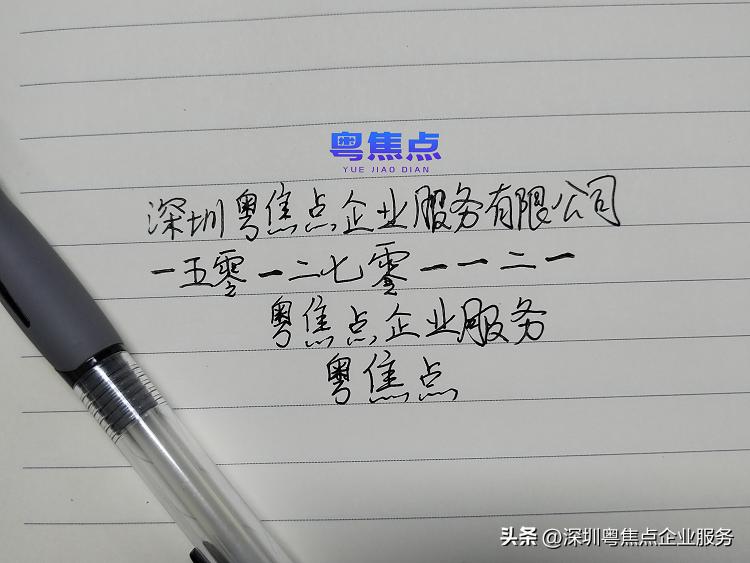 粤焦点
YUE JIAO DIAN
深圳粤焦点企业服务有限公司
一五零一二七零一一二一
粤焦点企业服务
粤焦点
头条 @深圳粤焦点企业服务